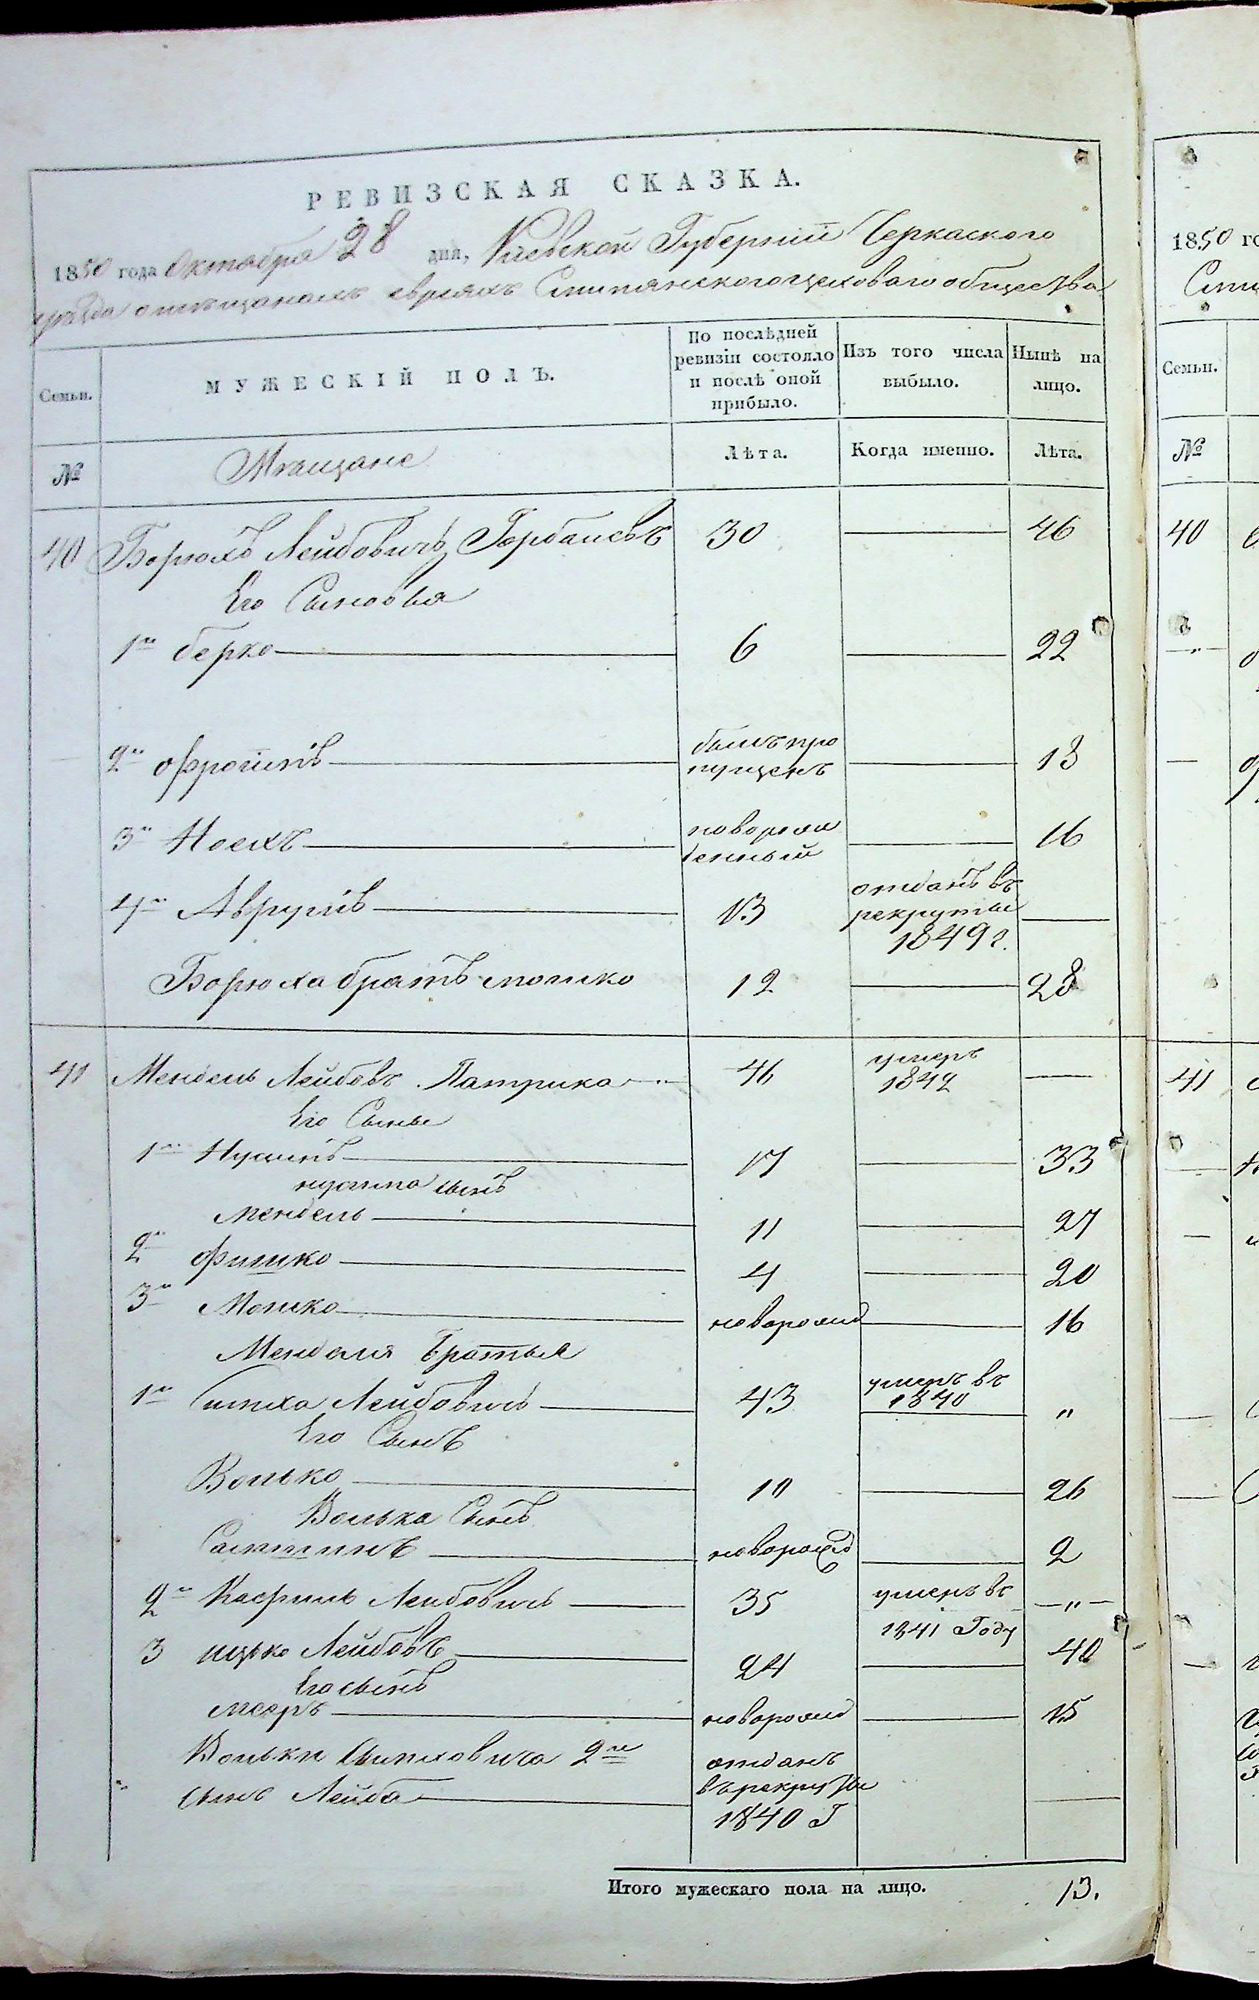 РЕВИЗСКАЯ СКАЗКА.
1850 года Октября 28 дня, Киевской Губерніи Черкаского
уезда о мещанахъ евреяхъ Смилянского цехового общества
Семьи. МУЖЕСКІЙ ПОЛЪ. По послѣдней ревизіи состояло и послѣ оной прибыло. Изъ того числа выбыло. Нынѣ на лицо.
№ Мещане Лѣта. Когда именно. Лѣта.
40 Борюхъ Лейбовичъ 30 46
Его Сыновья
1й берко 6 22
2й Фроимъ былъ пропущенъ 13
3й Ноехъ новорожденный 16
4й Аврумъ 13 отданъ въ рекруты 1849 г.
Борюха братъ мошко 12 28
41 Мендель Лейбовъ Патрика 46 умеръ 1842
Его Сыны
1й Нухимъ 17 33
нухима сынъ
Мендель 11 27
2й Фишко 4 20
3й Мошко новорожд 16
Менделя Братья
1й Симха Лейбовичъ 43 умеръ въ 1840 "
Его Сынъ
Волько 10 26
Волька Сынъ
новорожд 2
2й Касриль Лейбовичъ 35 умеръ въ 1841 Году "
3 ицко Лейбовъ 24 40
Его сынъ
мееръ новорожд 15
Вольки Симховича 2й
сынъ Лейба отданъ въ рекруты 1840 Г
Итого мужескаго пола на лицо. 13.
1850 го
Семьи.
№
40
41